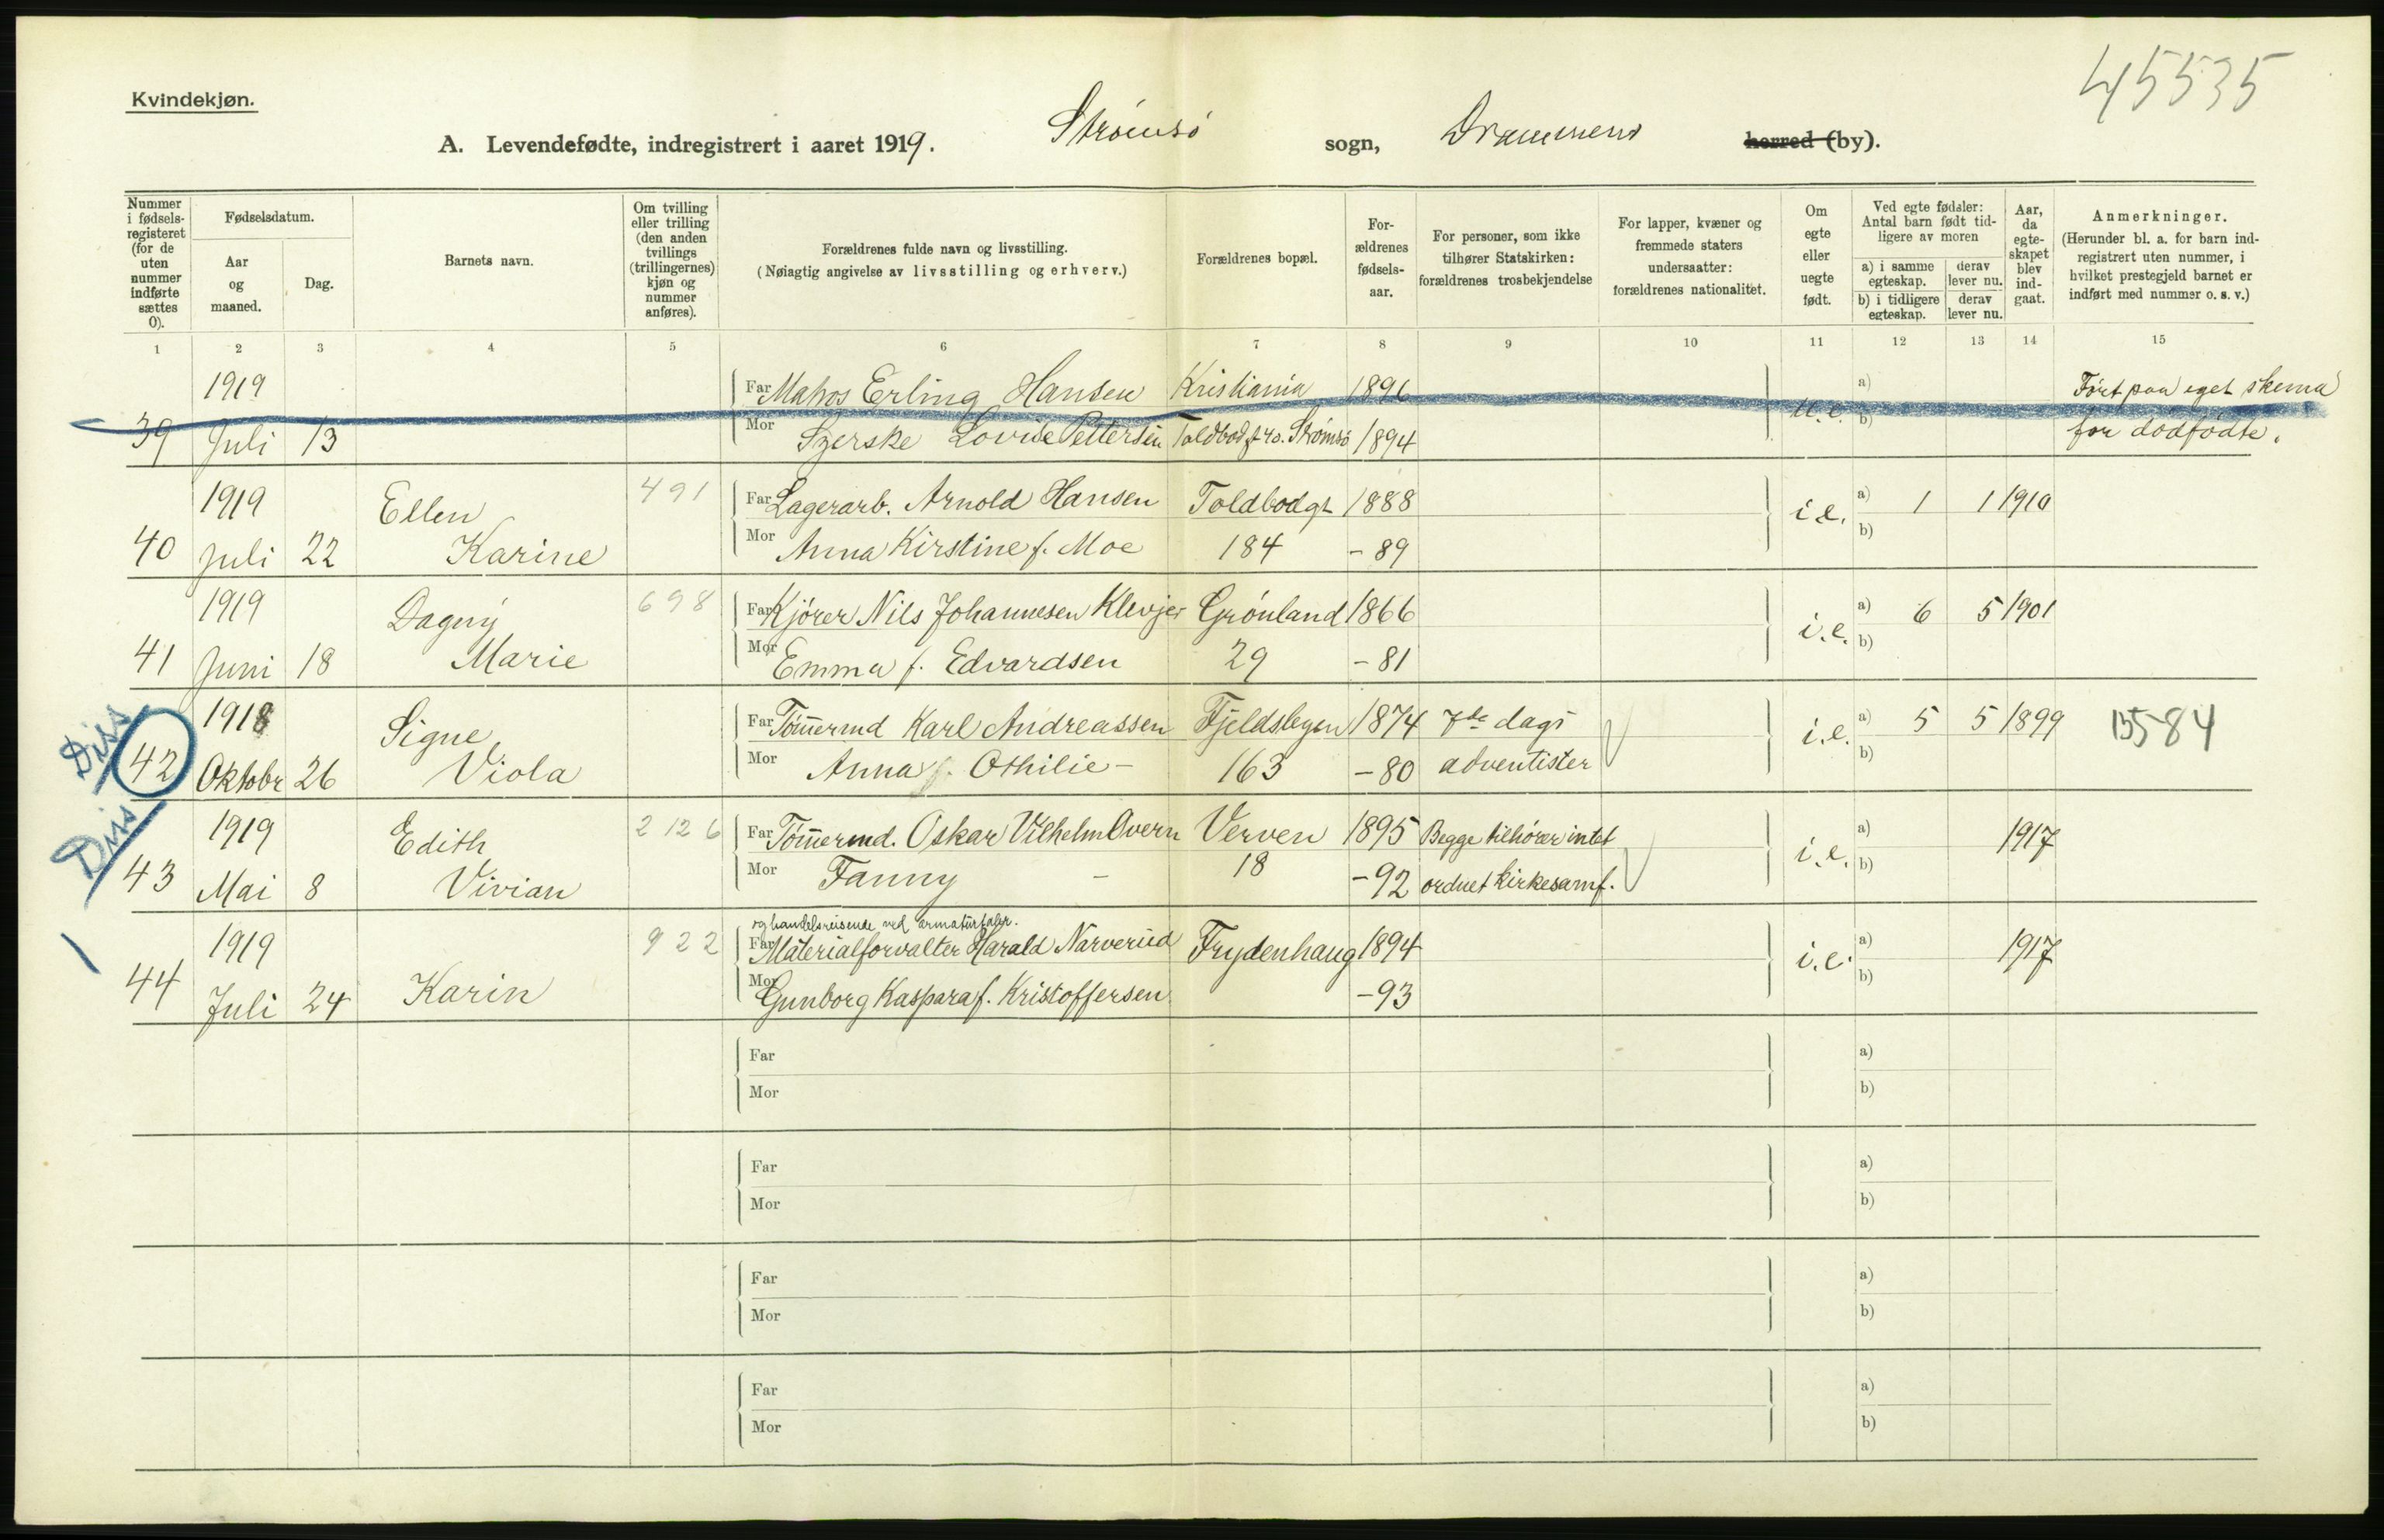 45535
Kvindekjøn.
A. Levendefødte, indregistrert i aaret 1919. Strømsø sogn, Drammens herred (by).
Nummer i fødsels-registeret (for de uten nummer indførte sættes 0).
Fødselsdatum.
Aar og maaned.
Dag.
Barnets navn.
Om tvilling eller trilling (den anden tvillings (trillingernes) kjøn og nummer anføres).
Forældrenes fulde navn og livsstilling.
(Nøiagtig angivelse av livsstilling og erhverv.)
Forældrenes bopæl.
For-ældrenes fødsels-aar.
For personer, som ikke tilhører Statskirken: forældrenes trosbekjendelse
For lapper, kvæner og fremmede staters undersaatter: forældrenes nationalitet.
Om egte eller uegte født.
Ved egte fødsler: Antal barn født tid-ligere av moren
a) i samme egteskap. derav lever nu.
b) i tidligere egteskap. derav lever nu.
Aar, da egte-skapet blev ind-gaat.
Anmerkninger.
(Herunder bl. a. for barn ind-registrert uten nummer, i hvilket prestegjeld barnet er indført med nummer o. s. v.)
1 2 3 4 5 6 7 8 9 10 11 12 13 14 15
1919 Far Matros Erling Hansen Kristiania 1896 a) Ført paa eget skema
39 Juli 13 Mor Lovise Pettersen Toldbodgt 40. Strømsø 1894 u.e. b) for dødfødte.
1919 Ellen 491 Far Lagerarb. Arnold Hansen Toldbodgt 1888 i.e. a) 1 1 1910
40 Juli 22 Karine Mor Anna Kirstine f. Moe 184 -89 b)
1919 Dagny 698 Far Kjører Nils Johannesen Klevjer Grønland 1866 i.e. a) 6 5 1901
41 Juni 18 Marie Mor Emma f. Edvardsen 29 -81 b)
Diss 1918 Signe Far Tømmermd Karl Andreassen Fjeldsbyen 1874 7de dags i.e. a) 5 5 1899 15584
42 Oktobr 26 Viola Mor Anna Othilie - 163 -80 adventister b)
Diss 1919 Edith 2126 Far Tømmermd. Oskar Vilhelm Overn Verven 1895 Begge tilhører intet i.e. a) 1917
43 Mai 8 Vivian Mor Fanny - 18 -92 ordnet kirkesamf. b)
og handelsreisende ved armaturfabr.
1919 922 Far Materialforvalter Harald Narverud Frydenhaug 1894 i.e. a) 1917
44 Juli 24 Karin Mor Gunborg Kaspara f. Kristoffersen -93 b)
Far a)
Mor b)
Far a)
Mor b)
Far a)
Mor b)
Far a)
Mor b)